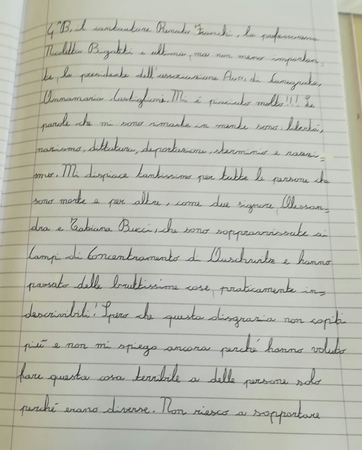 4ªB, il cantautore Renato Franchi, la professoressa
Nicoletta Bigatti e ultima, ma non meno importan-
te, la presidente dell'associazione Aned di Canegrate,
Annamaria Castiglioni. Mi è piaciuto molto!!! Le
parole che mi sono rimaste in mente sono: libertà,
nazismo, dittatura, deportazione, sterminio e razzi-
mo. Mi dispiace tantissimo per tutte le persone che
sono morte e per altre, come due signore, Alessan-
dra e Tatiana Bucci, che sono sopravvissute ai
Campi di Concentramento di Auschwitz e hanno
passato delle bruttissime cose, praticamente in-
descrivibili! Spero che questa disgrazia non capiti
più e non mi spiego ancora perché hanno voluto
fare questa cosa terribile a delle persone solo
perché erano diverse. Non riesco a sopportare